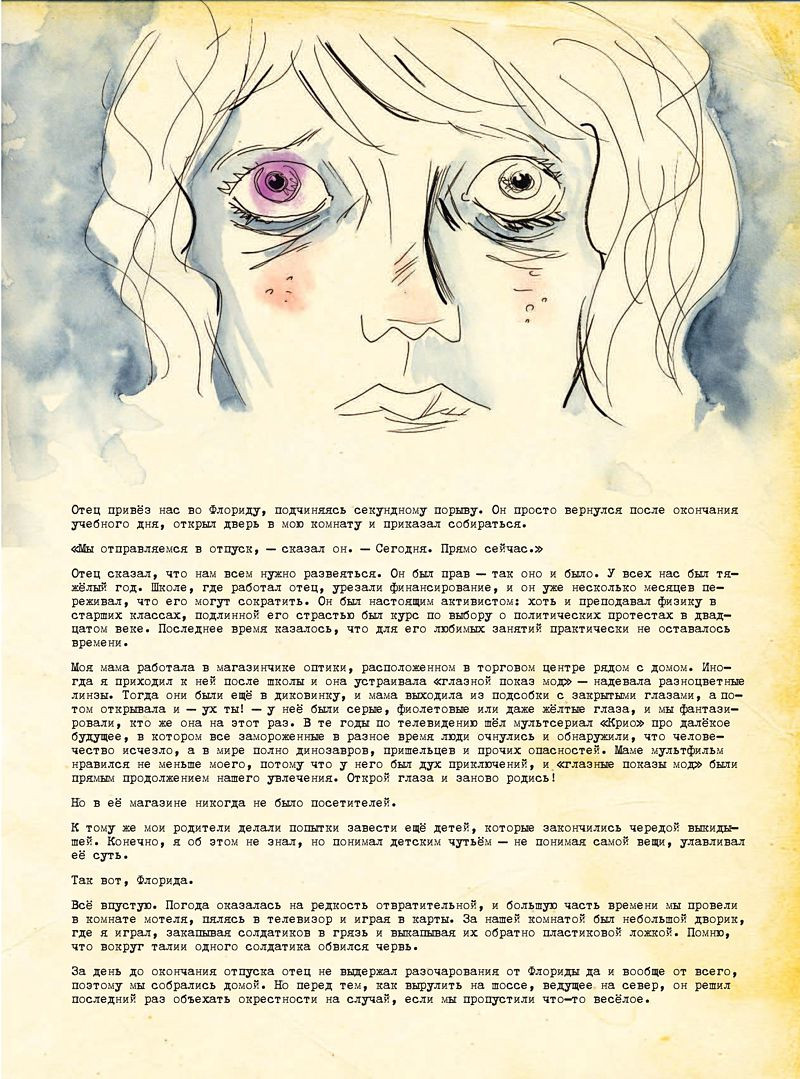 Отец привёз нас во Флориду, подчиняясь секундному порыву. Он просто вернулся после окончания
учебного дня, открыл дверь в мою комнату и приказал собираться.
«Мы отправляемся в отпуск, — сказал он. — Сегодня. Прямо сейчас.»
Отец сказал, что нам всем нужно развеяться. Он был прав — так оно и было. У всех нас был тя-
жёлый год. Школе, где работал отец, урезали финансирование, и он уже несколько месяцев пе-
реживал, что его могут сократить. Он был настоящим активистом: хоть и преподавал физику в
старших классах, подлинной его страстью был курс по выбору о политических протестах в двад-
цатом веке. Последнее время казалось, что для его любимых занятий практически не оставалось
времени.
Моя мама работала в магазинчике оптики, расположенном в торговом центре рядом с домом. Ино-
гда я приходил к ней после школы и она устраивала «глазной показ мод» — надевала разноцветные
линзы. Тогда они были ещё в диковинку, и мама выходила из подсобки с закрытыми глазами, а по-
том открывала и — ух ты! — у неё были серые, фиолетовые или даже жёлтые глаза, и мы фантази-
ровали, кто же она на этот раз. В те годы по телевидению шёл мультсериал «Крио» про далёкое
будущее, в котором все замороженные в разное время люди очнулись и обнаружили, что челове-
чество исчезло, а в мире полно динозавров, пришельцев и прочих опасностей. Маме мультфильм
нравился не меньше моего, потому что у него был дух приключений, и «глазные показы мод» были
прямым продолжением нашего увлечения. Открой глаза и заново родись!
Но в её магазине никогда не было посетителей.
К тому же мои родители делали попытки завести ещё детей, которые закончились чередой выкиды-
шей. Конечно, я об этом не знал, но понимал детским чутьём — не понимая самой вещи, улавливал
её суть.
Так вот, Флорида.
Всё впустую. Погода оказалась на редкость отвратительной, и большую часть времени мы провели
в комнате мотеля, пялясь в телевизор и играя в карты. За нашей комнатой был небольшой дворик,
где я играл, закапывая солдатиков в грязь и выкапывая их обратно пластиковой ложкой. Помню,
что вокруг талии одного солдатика обвился червь.
За день до окончания отпуска отец не выдержал разочарования от Флориды да и вообще от всего,
поэтому мы собрались домой. Но перед тем, как вырулить на шоссе, ведущее на север, он решил
последний раз объехать окрестности на случай, если мы пропустили что-то весёлое.